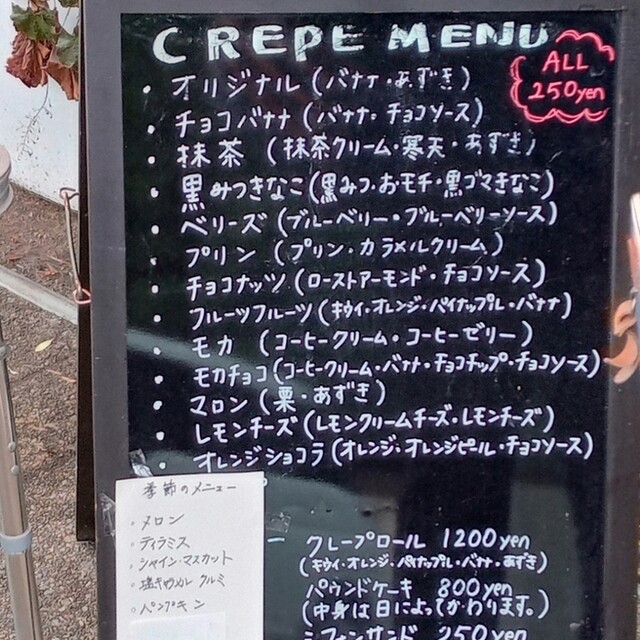 CREPE MENU
ALL
250yen
・オリジナル(バナナ・あずき)
・チョコバナナ(バナナ・チョコソース)
・抹茶(抹茶クリーム・寒天・あずき)
・黒みつきなこ(黒みつ・おモチ・黒ゴマきなこ)
・ベリーズ(ブルーベリー・ブルーベリーソース)
・プリン(プリン・カラメルクリーム)
・チョコナッツ(ローストアーモンド・チョコソース)
・フルーツフルーツ(キウイ・オレンジ・パイナップル・バナナ)
・モカ(コーヒークリーム・コーヒーゼリー)
・モカチョコ(コーヒークリーム・バナナ・チョコチップ・チョコソース)
・マロン(栗・あずき)
・レモンチーズ(レモンクリームチーズ・レモンチーズ)
・オレンジショコラ(オレンジ・オレンジピール・チョコソース)
季節のメニュー
・メロン
・ティラミス
・シャイン・マスカット
・塩キャラメル クルミ
・パンプキン
クレープロール 1200yen
(キウイ・オレンジ・パイナップル・バナナ・あずき)
パウンドケーキ 800yen
(中身は日によってかわります。)
シフォンサンド 250yen